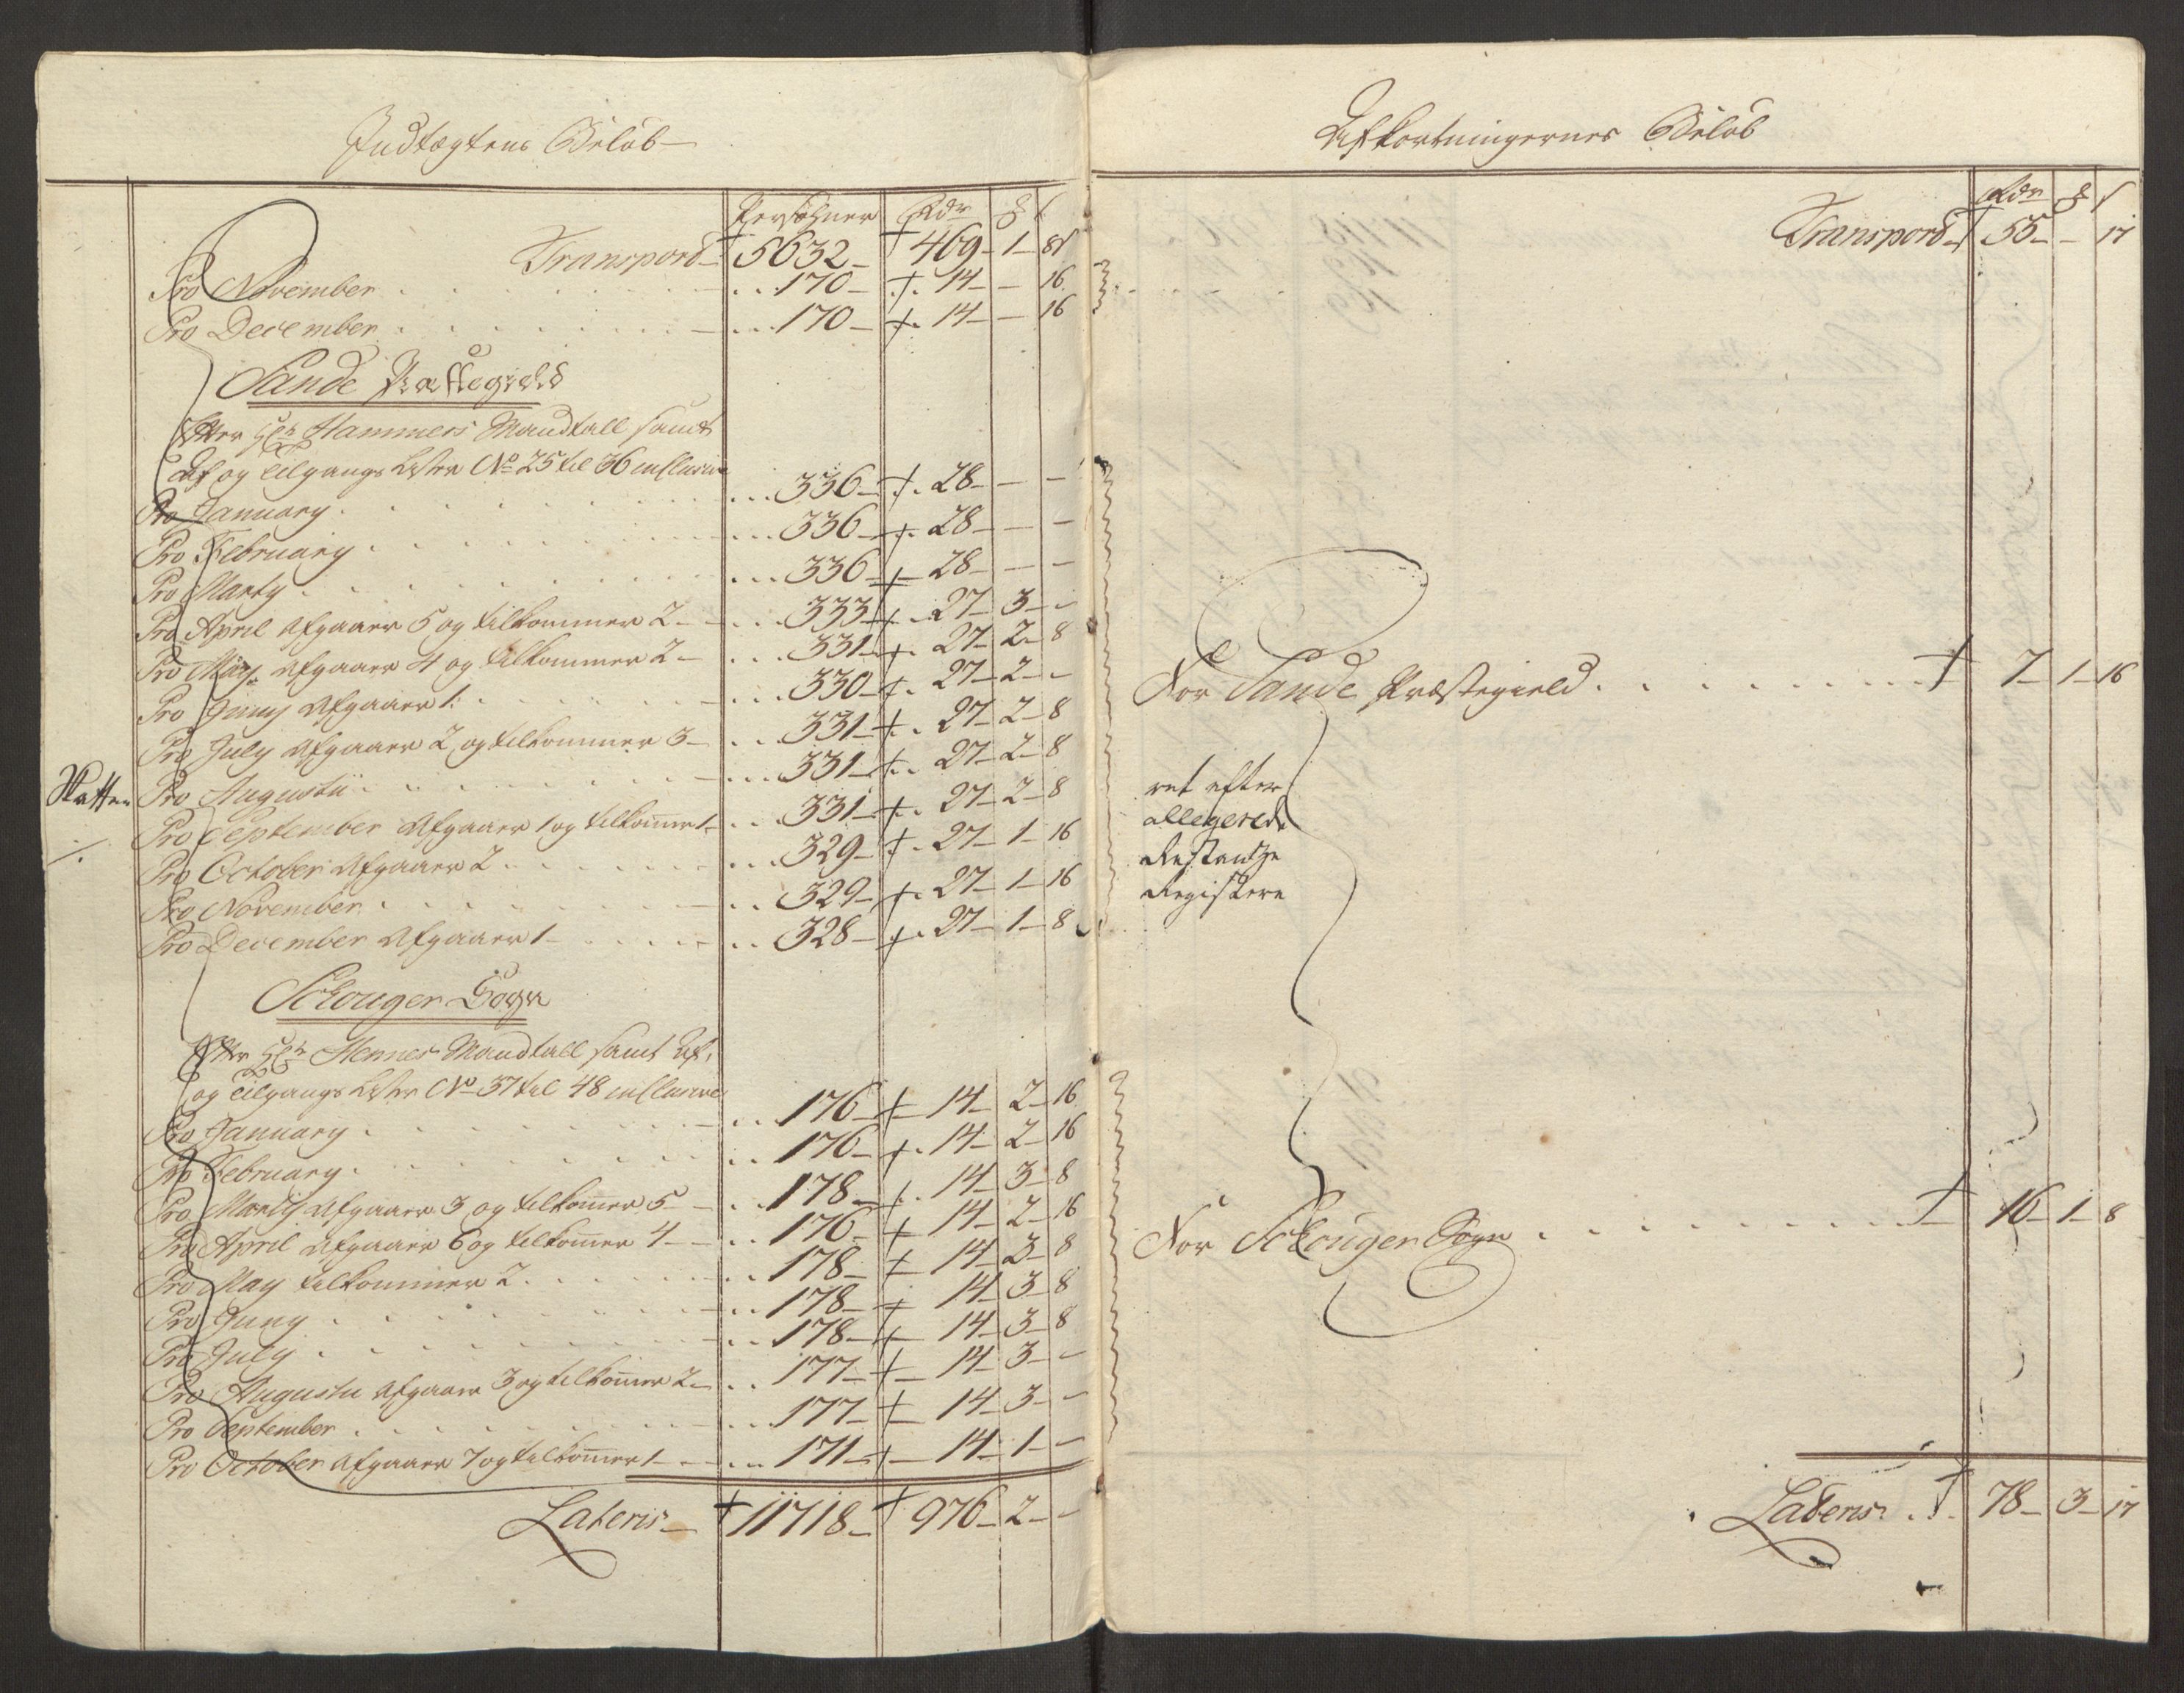 Indtægtens Beløb
Persohner Rdr ℥ s
Transpord 5632 469 1 8
Pro November 170 14 — 16
Pro December 170 14 — 16
Sande Præstegield
Efter Hr Hammers Mandtall samt
Af og Tilgangs Lister No 25 til 36 inclusive
Pro January 336 28 — —
Pro February 336 28 — —
Pro Marty 336 28 — —
Pro April Afgaaer 5 og tilkommer 2 333 27 3 —
Pro May Afgaaer 4 og tilkommer 2 331 27 2 8
Pro Juny Afgaaer 1 330 27 2 —
Pro July Afgaaer 2 og tilkommer 3 331 27 2 8
Skatten Pro Augusti 331 27 2 8
Pro September Afgaaer 1 og tilkomer 1 331 27 2 8
Pro October Afgaaer 2 329 27 1 16
Pro November 329 27 1 16
Pro December Afgaaer 1 328 27 1 8
Schouger Sogn
Efter Hr Hennes Mandtall samt Af
og Tilgangs Lister No 37 til 48 inclusive
Pro January 176 14 2 16
Pro February 176 14 2 16
Pro Marty Afgaaer 3 og tilkomer 5 178 14 3 8
Pro April Afgaaer 6 og tilkomer 4 176 14 2 16
Pro May tilkommer 2 178 14 3 8
Pro Juny 178 14 3 8
Pro July 178 14 3 8
Pro Augustu Afgaaer 3 og tilkomer 2 177 14 3 —
Pro September 177 14 3 —
Pro October Afgaaer 7 og tilkomer 1 171 14 1 —
Lateris 11718 976 2 —
Afkortningernes Beløb
Rdr ℥ s
Transpord 55 — 17
For Sande Præstegield 7 1 16
ret efter
allegerede
Restantze
Registere
For Schouger Sogn 16 1 8
Lateris 78 3 17